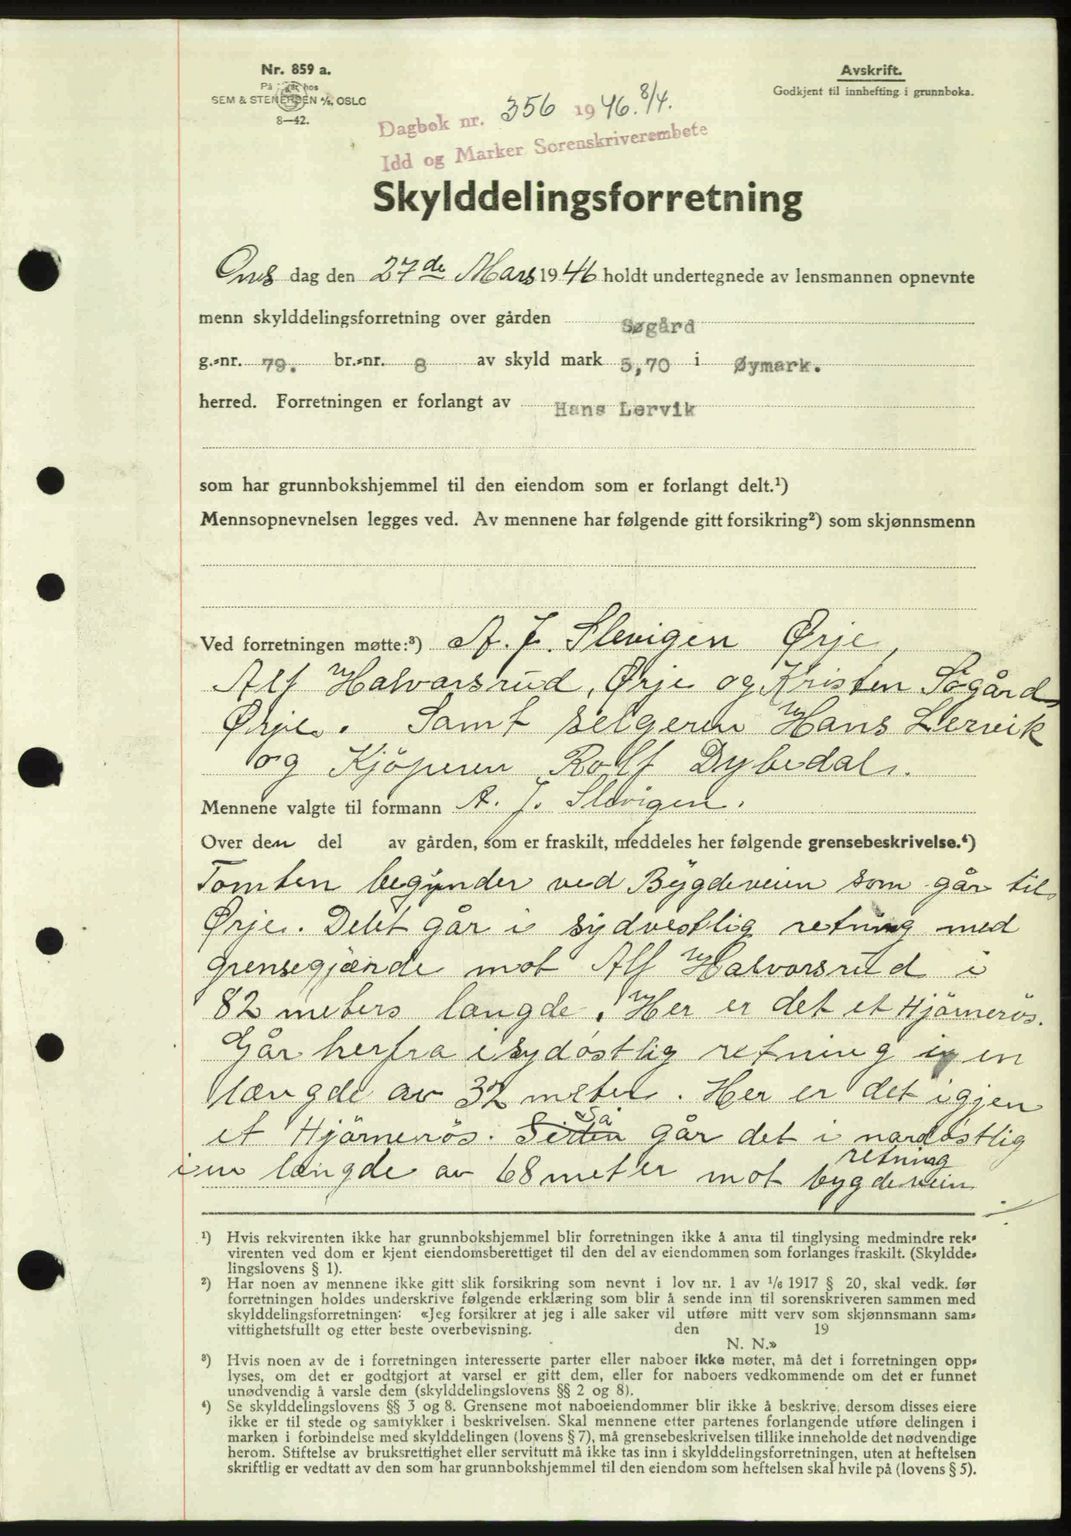 Nr. 859 a.
SEM & STENERSEN A/S, OSLO
8—42.
Avskrift.
Godkjent til innhefting i grunnboka.
Dagbok nr. 356 1946. 8/4.
Idd og Marker Sorenskriverembete
Skylddelingsforretning
Ons dag den 27de Mars 1946 holdt undertegnede av lensmannen opnevnte
menn skylddelingsforretning over gården Søgård
g.-nr. 79. br.-nr. 8 av skyld mark 5,70 i Øymark.
herred. Forretningen er forlangt av Hans Lervik
som har grunnbokshjemmel til den eiendom som er forlangt delt.¹)
Mennsopnevnelsen legges ved. Av mennene har følgende gitt forsikring²) som skjønnsmenn
Ved forretningen møtte:³) A. J. Slevigen Ørje,
Alf Halvorsrud, Ørje og Kristen Søgård
Ørje. Samt selgeren Hans Lervik
og Kjöperen Rolf Dybedal.
Mennene valgte til formann A. J. Slevigen.
Over den del av gården, som er fraskilt, meddeles her følgende grensebeskrivelse.⁴)
Tomten begynder ved Bygdeveien som går til
Ørje. Delet går i sydvestlig retning med
grensegjærde mot Alf Halvorsrud i
82 meters længde. Her er det et Hjörnerös.
Går herfra i sydöstlig retning i en
længde av 32 meter. Her er det igjen
et Hjörnerös. Siden så går det i nordöstlig
retning
i en længde av 68 meter mot bygdeveien
¹) Hvis rekvirenten ikke har grunnbokshjemmel blir forretningen ikke å anta til tinglysing medmindre rek-
virenten ved dom er kjent eiendomsberettiget til den del av eiendommen som forlanges fraskilt. (Skyldde-
lingslovens § 1).
²) Har noen av mennene ikke gitt slik forsikring som nevnt i lov nr. 1 av 1/6 1917 § 20, skal vedk. før
forretningen holdes underskrive følgende erklæring som blir å sende inn til sorenskriveren sammen med
skylddelingsforretningen: «Jeg forsikrer at jeg i alle saker vil utføre mitt verv som skjønnsmann sam-
vittighetsfullt og etter beste overbevisning. den 19
N. N.»
³) Hvis noen av de i forretningen interesserte parter eller naboer ikke møter, må det i forretningen opp-
lyses, om det er godtgjort at varsel er gitt dem, eller for naboers vedkommende om det er funnet
unødvendig å varsle dem (skylddelingslovens §§ 2 og 8).
⁴) Se skylddelingslovens §§ 3 og 8. Grensene mot naboeiendommer blir ikke å beskrive, dersom disses eiere
ikke er til stede og samtykker i beskrivelsen. Skal mennene etter partenes forlangende utføre delingen i
marken i forbindelse med skylddelingen (lovens § 7), må grensebeskrivelsen tillike inneholde det nødvendige
herom. Stiftelse av bruksrettighet eller servitutt må ikke tas inn i skylddelingsforretningen, uten at heftelsen
skriftlig er vedtatt av den som har grunnbokshjemmel til den eiendom som heftelsen skal hvile på (lovens § 5).